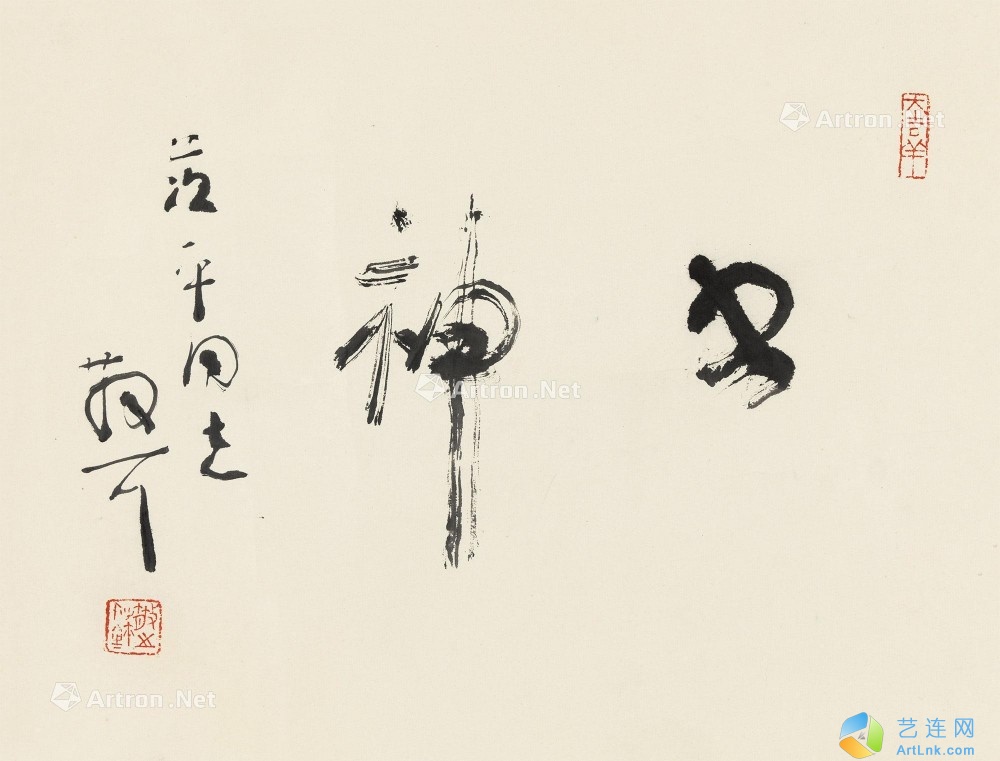 大吉羊
神
范平同志
散耳
Artron.Net
Artron.Net
Artron.Net
艺连网
ArtLnk.com